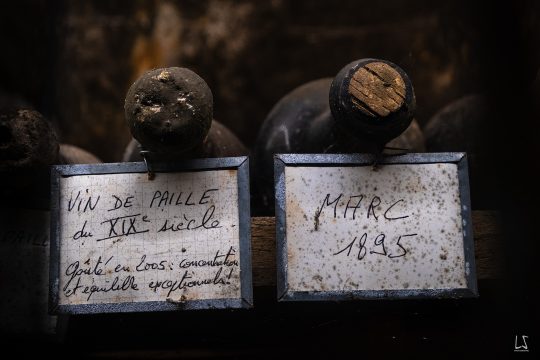 VIN DE PAILLE
du XIXe siècle.
Goûté en 2005 : concentration
et équilibre exceptionnels !
MARC
1895
PAILLE
LS